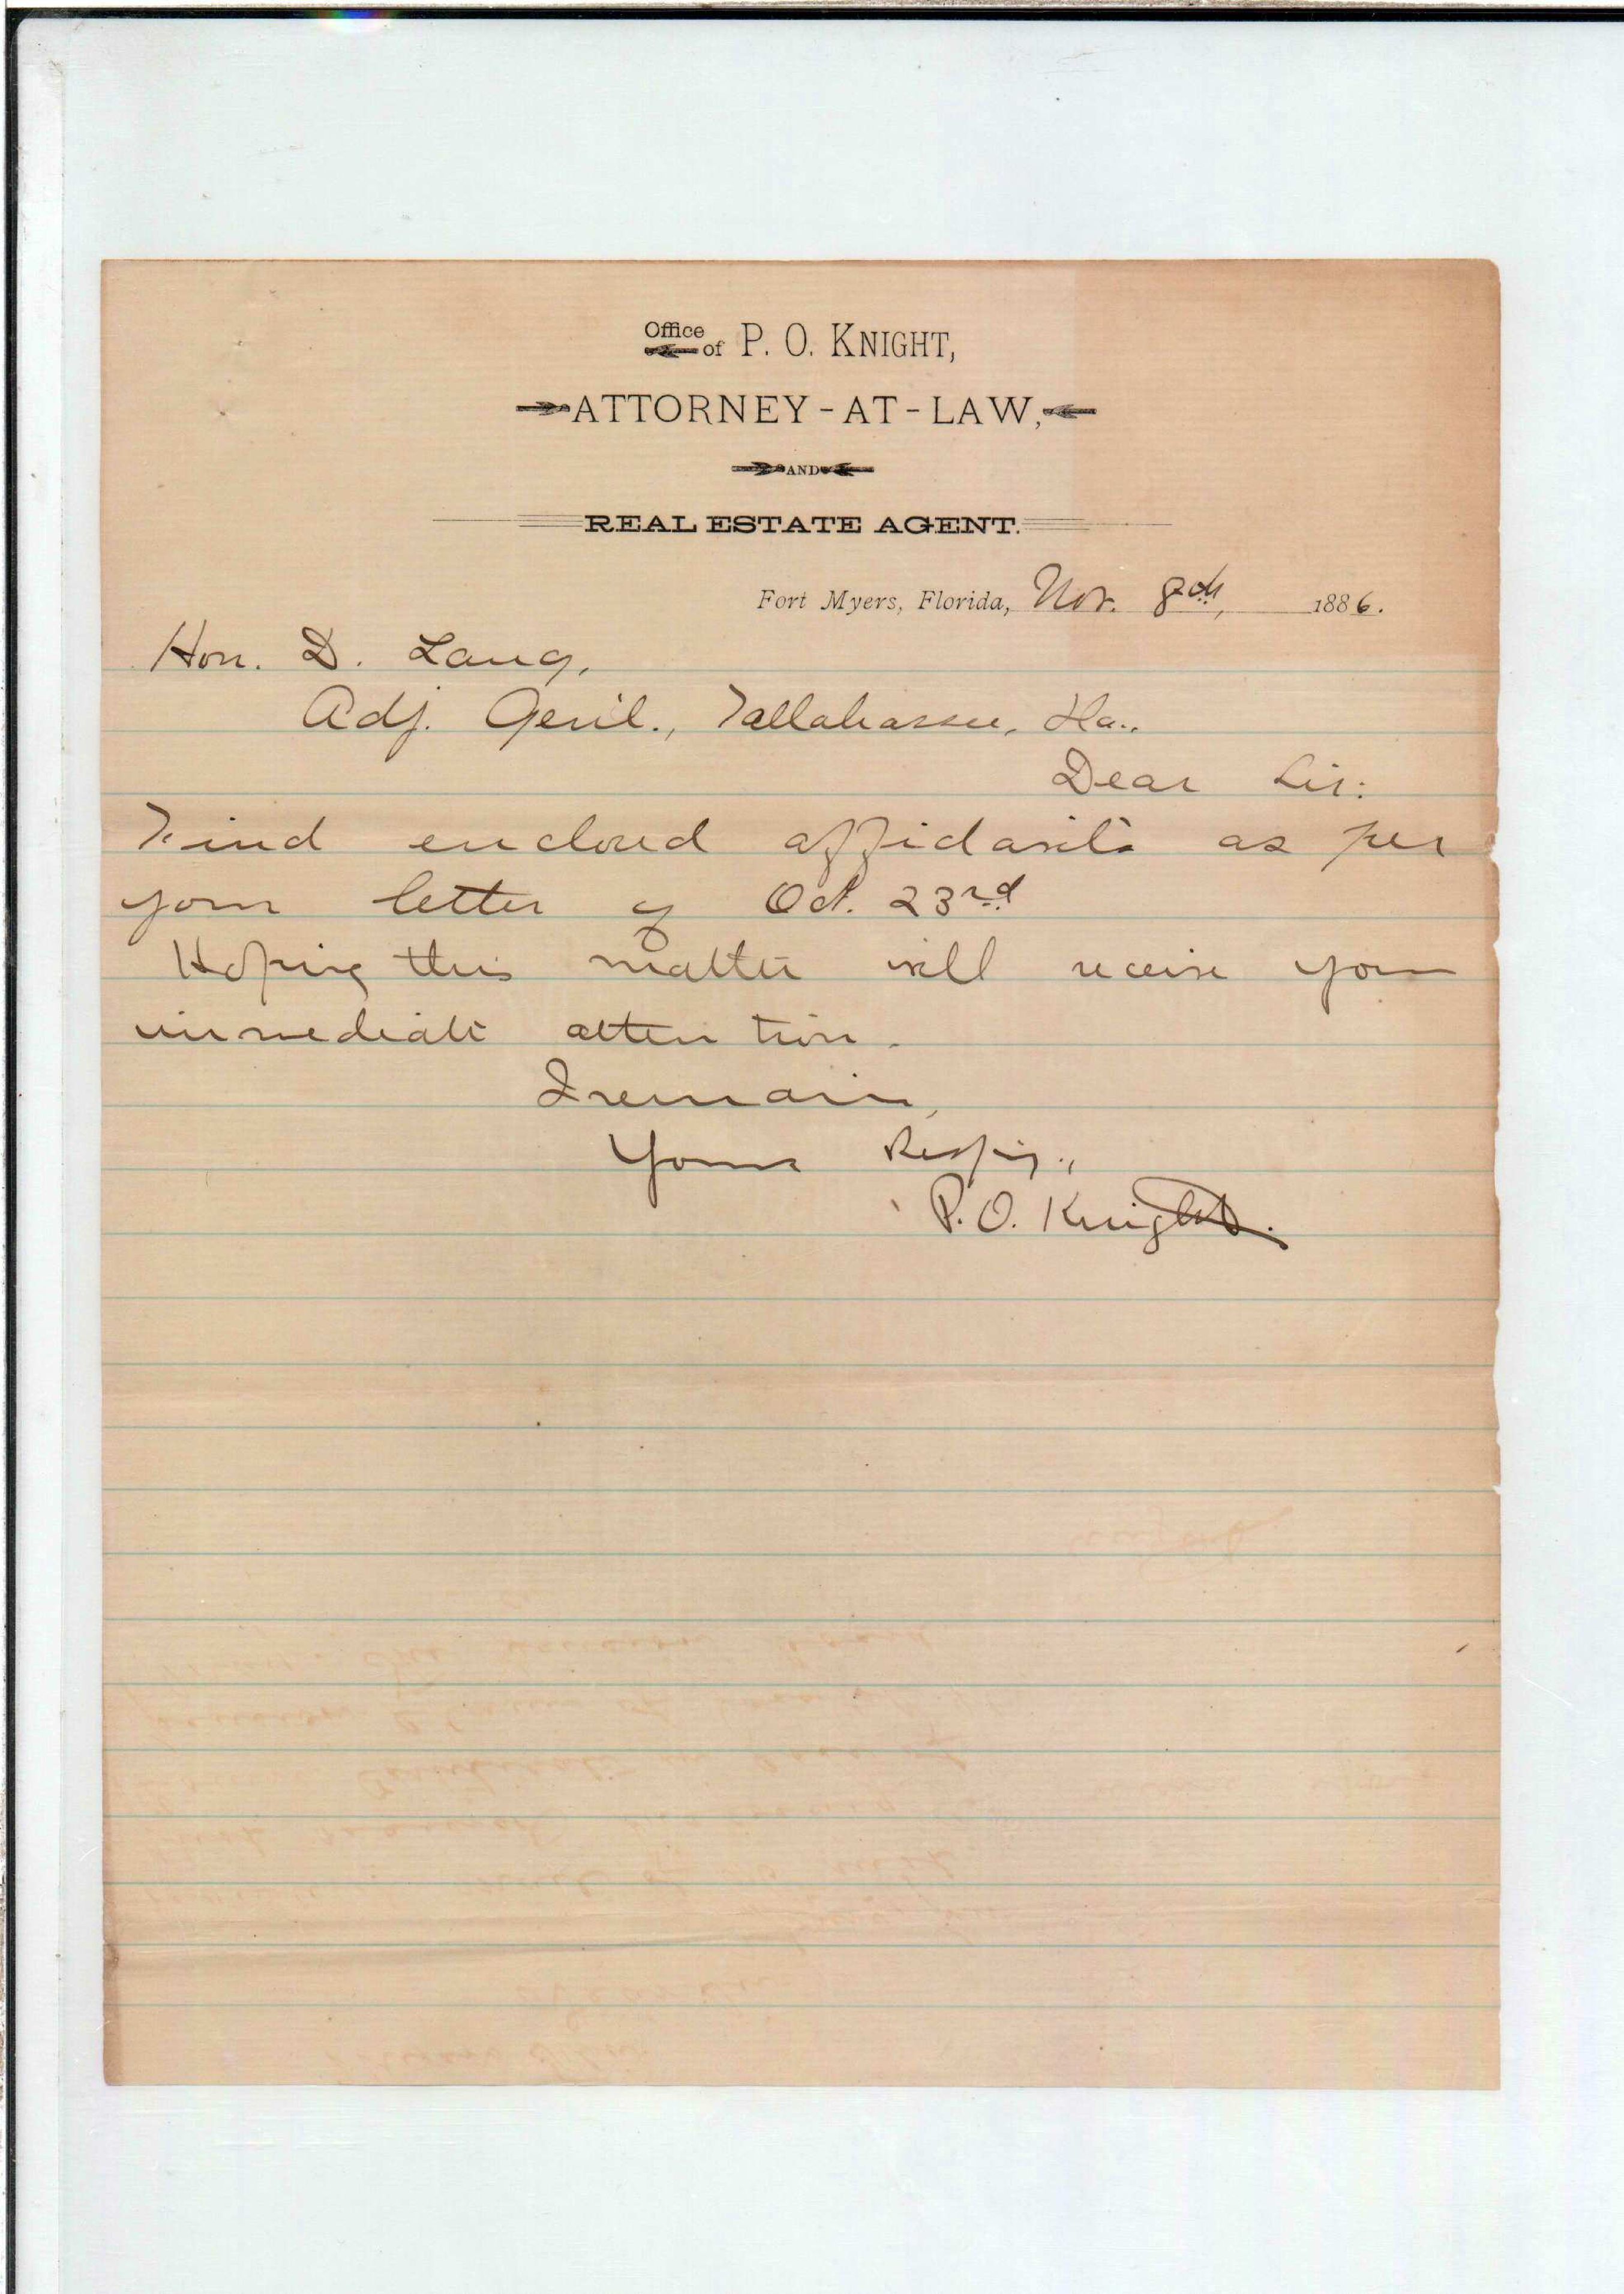 Office of P. O. KNIGHT,
ATTORNEY-AT-LAW,
AND
REAL ESTATE AGENT.
Fort Myers, Florida, Nov. 8th, 1886.
Hon. D. Lang,
Adj. Gen'l., Tallahassee, Fla.,
Dear Sir:
Find enclosed affidavits as per
your letter of Oct. 23rd
Hoping this matter will receive your
immediate attention.
I remain,
Yours Respy.,
P. O. Knight.